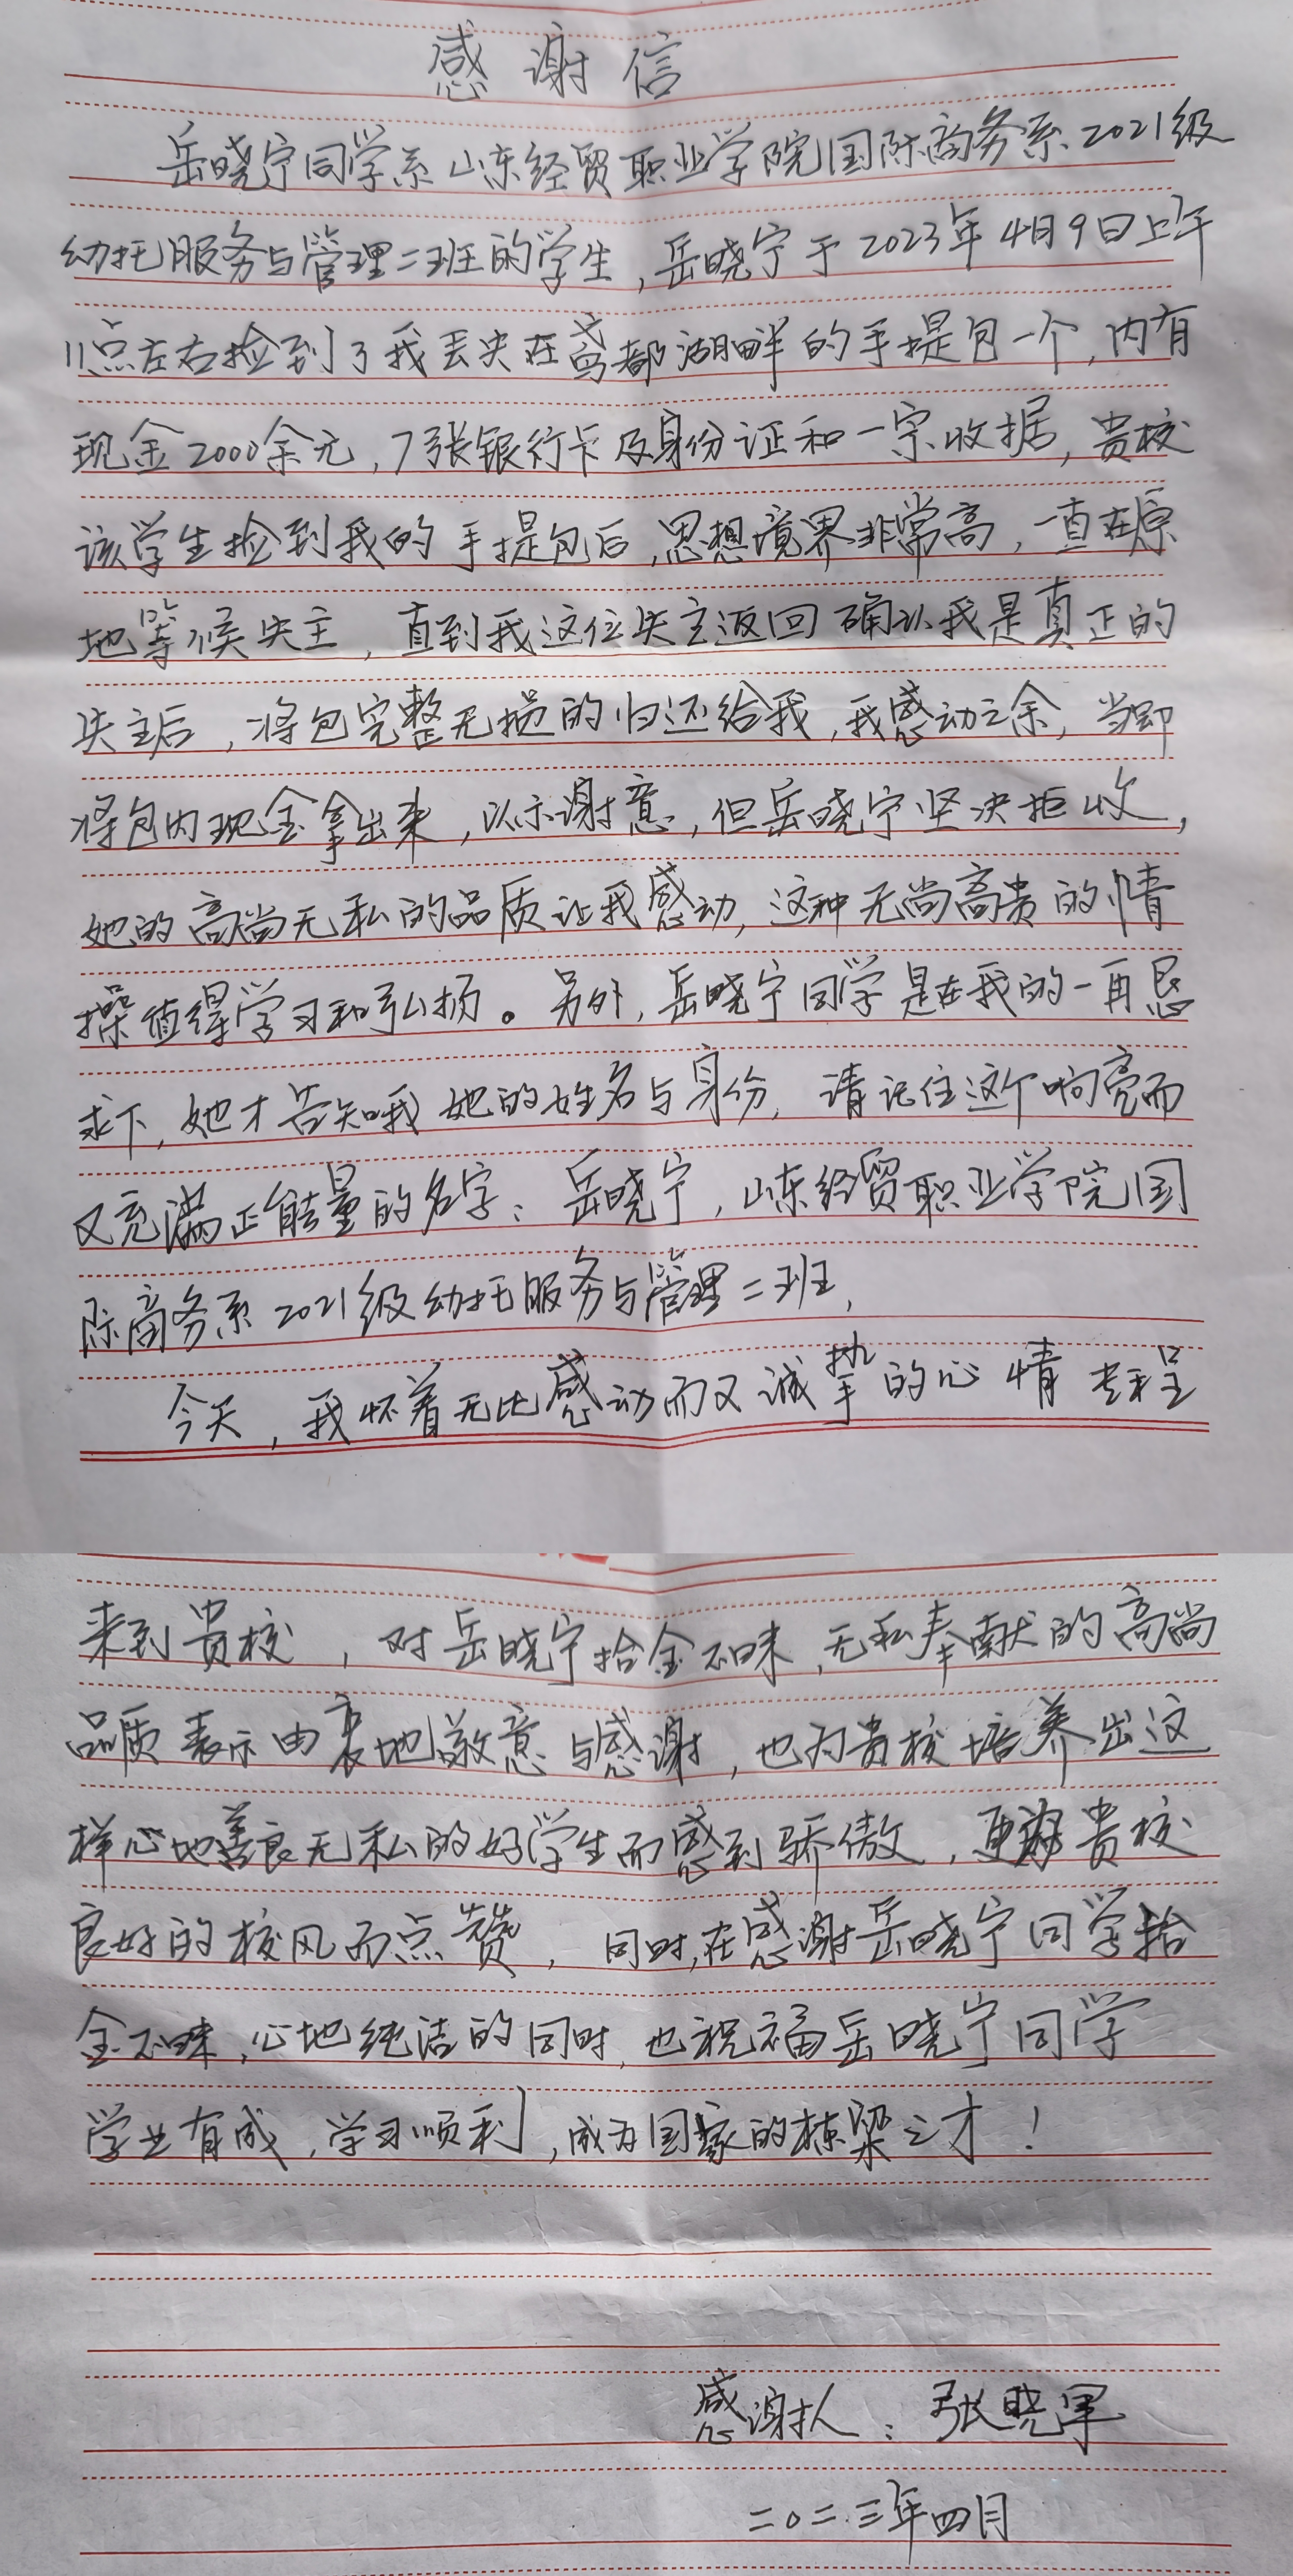 感谢信
岳晓宁同学系山东经贸职业学院国际商务系2021级
幼托服务与管理二班的学生,岳晓宁于2023年4月9日上午
11点左右捡到了我丢失在鸢都湖畔的手提包一个,内有
现金2000余元,7张银行卡及身份证和一宗收据,贵校
该学生捡到我的手提包后,思想境界非常高,一直在原
地等候失主,直到我这位失主返回确认我是真正的
失主后,将包完整无损的归还给我,我感动之余,当即
将包内现金拿出来,以示谢意,但岳晓宁坚决拒收,
她的高尚无私的品质让我感动,这种无尚高贵的情
操值得学习和弘扬。另外,岳晓宁同学是在我的一再恳
求下,她才告知我她的姓名与身份,请记住这个响亮而
又充满正能量的名字:岳晓宁,山东经贸职业学院国
际商务系2021级幼托服务与管理二班,
今天,我怀着无比感动而又诚挚的心情专程
来到贵校,对岳晓宁拾金不昧,无私奉献的高尚
品质表示由衷地敬意与感谢,也为贵校培养出这
样心地善良无私的好学生而感到骄傲,更为贵校
良好的校风而点赞,同时,在感谢岳晓宁同学拾
金不昧,心地纯洁的同时,也祝福岳晓宁同学
学业有成,学习顺利,成为国家的栋梁之才!
感谢人:张晓军
二〇二三年四月